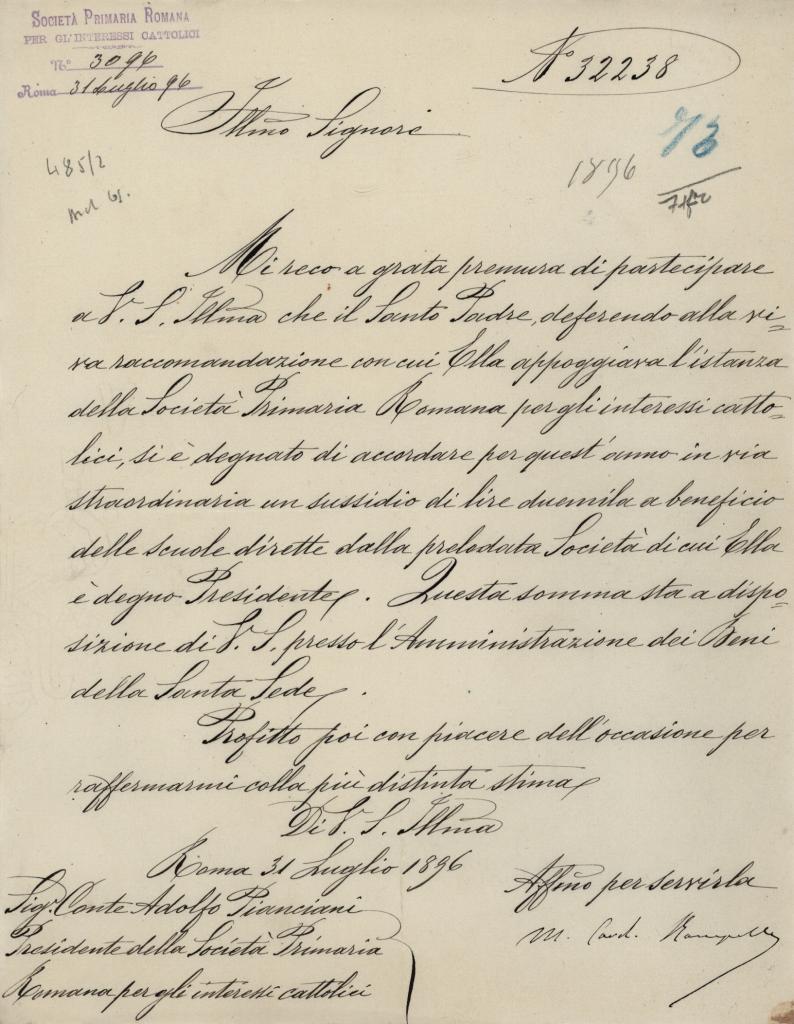 SOCIETÀ PRIMARIA ROMANA
PER GL'INTERESSI CATTOLICI
N° 3096
Roma 31 Luglio 96
N° 32238
Illmo Signore
485/2
1896
73
Mi reco a grata premura di partecipare
a V. S. Illma che il Santo Padre, deferendo alla vi=
va raccomandazione con cui Ella appoggiava l'istanza
della Società Primaria Romana per gli interessi catto=
lici, si è degnato di accordare per quest'anno in via
straordinaria un sussidio di lire duemila a beneficio
delle scuole dirette dalla prelodata Società di cui Ella
è degno Presidente. Questa somma sta a dispo=
sizione di V. S. presso l'Amministrazione dei Beni
della Santa Sede.
Profitto poi con piacere dell'occasione per
raffermarmi colla più distinta stima
Di V. S. Illma
Roma 31 Luglio 1896
Affmo per servirla
M. Card. Rampolla
Sigr. Conte Adolfo Pianciani
Presidente della Società Primaria
Romana per gli interessi cattolici